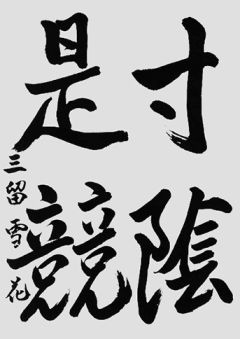 寸陰
是競
三留雪花